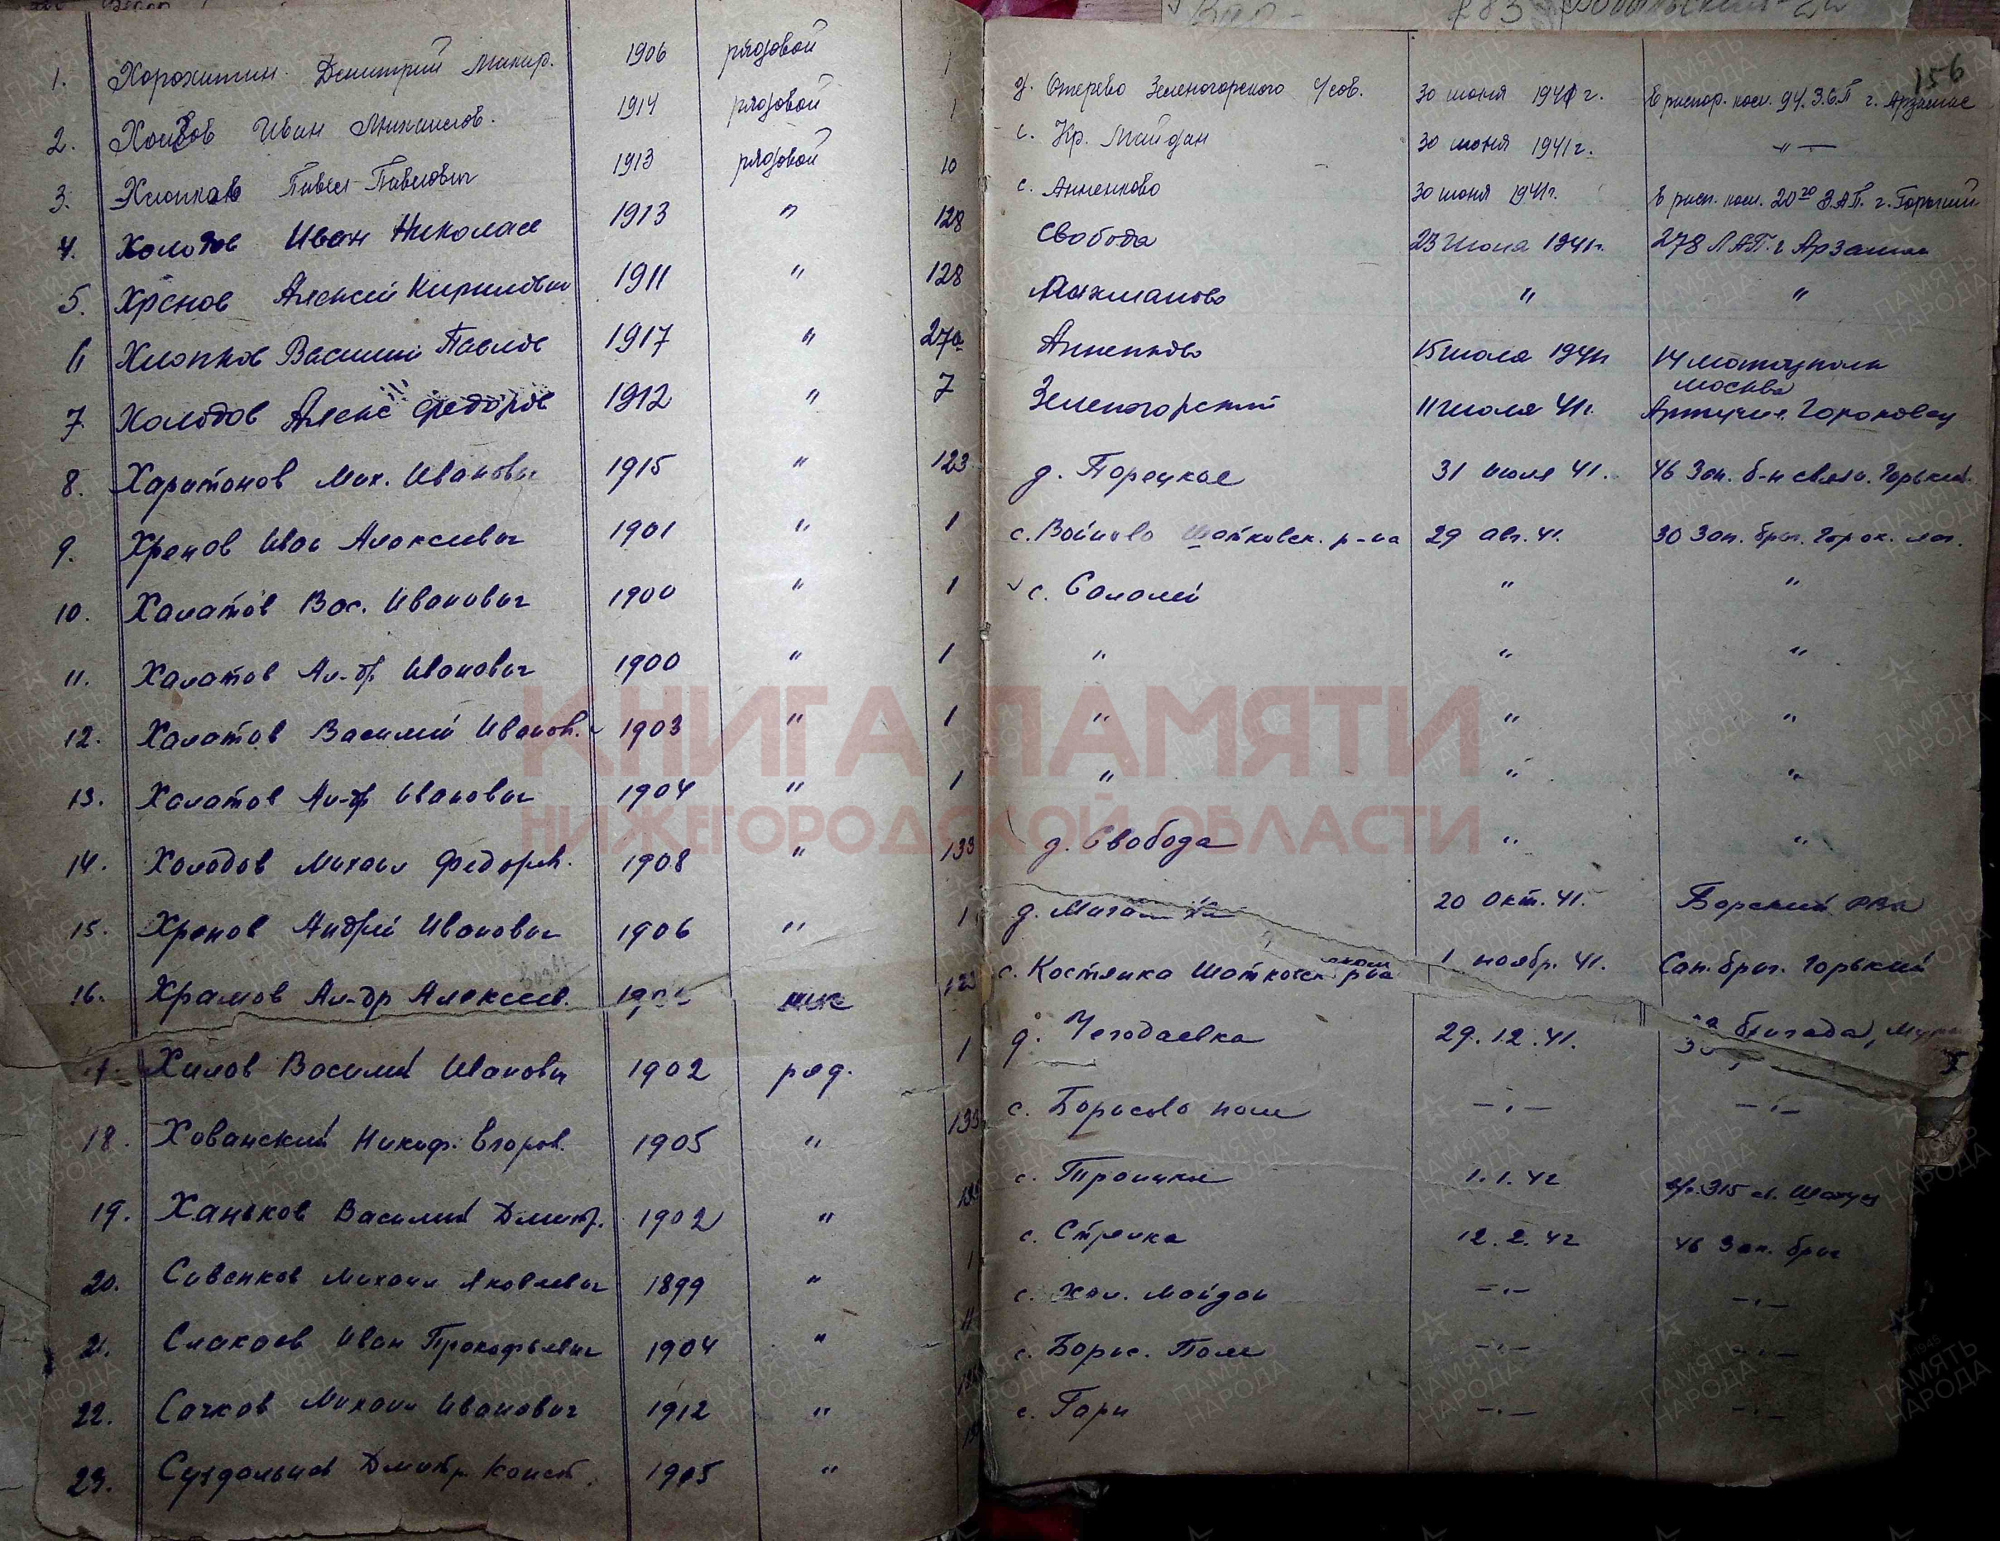 156
1. Дмитрий Макар. 1906 рядовой 1 д. Зеленогорского с/сов. 30 июня 1941 г. В распор. ком. 94 З.С.П г. Арзамас
2. Иван Михайлов. 1914 рядовой 1 с. Кр. Майдан 30 июня 1941 г. –"–
3. Хлопков Павел Павлович 1913 рядовой 10 с. Анненково 30 июня 1941 г. В расп. ком. 20го З.А.П. г. Горький
4. Холодов Иван Николае 1913 " 128 Свобода 23 Июня 1941 г. 278 ЛАП. г Арзамас
5. Хренов Алексей Кирилович 1911 " 128 Рахманово " "
6 Хлопков Василий Павлов 1917 " 27а Анненково 15 июля 1941 г 14 мотоциклп Москва
7. Холодов Алекс Федоров 1912 " 7 Зеленогорский 11 июля 41 г. Гороховец
8. Харитонов Мих. Иванович 1915 " 123 д. Порецкое 31 июля 41. 46 Зап. б-н связи. Горький
9. Хренов Иван Алексеевич 1901 " 1 с. Войново Шатковск. р-на 29 авг. 41. 30 Зап. бриг. Горох. лаг.
10. Халатов Вас. Иванович 1900 " 1 с. Салалей " "
11. Халатов Ал-др Иванович 1900 " 1 " " "
12. Халатов Василий Иванов. 1903 " 1 " " "
13. Халатов Ал-др Иванович 1904 " 1 " " "
14. Холодов Михаил Федоров. 1908 " 133 д. Свобода " "
15. Хренов Андрей Иванович 1906 " 1 д. 20 окт. 41. Борский РВК
16. Храмов Ал-др Алексеев. 123 с. Костянка Шатковск. р-на 1 ноябр. 41. Сап. бриг. Горький
Хилов Василий Иванович 1902 ряд. 1 д. Чегодаевка 29.12.41. бригада,
18. Хованский Никоф. Егоров. 1905 " с. Борисово поле –"– –"–
19. Ханьков Василий Дмитр. 1902 " с. Троицкое 1.1.42
20. Савенков Михаил Яковлевич 1899 " 1 с. Стрелка 12.2.42 46 Зап. бриг
21. Слакаев Иван Прокофьевич 1904 " с. Хол. Майдан –"– –"–
22. Сачков Михаил Иванович 1912 " с. Борис. Поле –"– –"–
23. Суздальцев Дмитр. Конст. 1905 " с. Гари –"– –"–
КНИГА ПАМЯТИ
НИЖЕГОРОДСКОЙ ОБЛАСТИ
ПАМЯТЬ НАРОДА